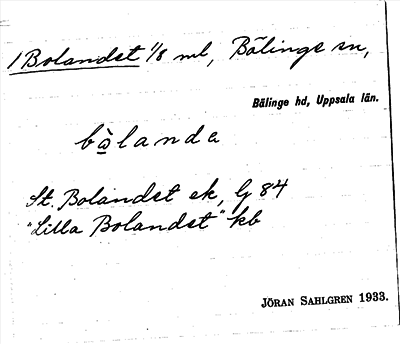 1 Bolandet 1/8 ml, Bälinge sn,
Bälinge hd, Uppsala län.
bòlandɛ
St. Bolandet ek, lj 84
"Lilla Bolandet" kb
JÖRAN SAHLGREN 1933.